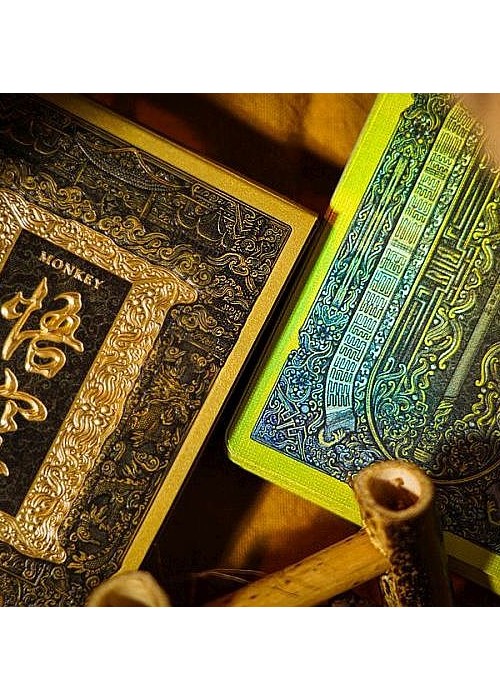 MONKEY
悟
空